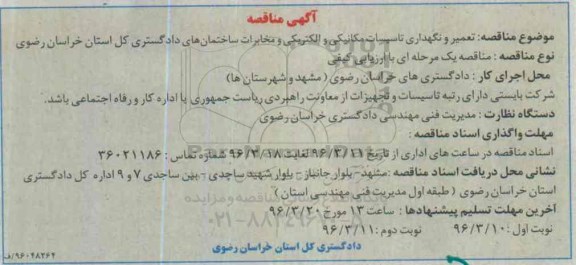 آگهی مناقصه
موضوع مناقصه: تعمیر و نگهداری تاسیسات مکانیکی و الکتریکی و مخابرات ساختمان‌های دادگستری کل استان خراسان رضوی
نوع مناقصه : مناقصه یک مرحله ای با ارزیابی کیفی
محل اجرای کار : دادگستری های خراسان رضوی ( مشهد و شهرستان ها)
شرکت بایستی دارای رتبه تاسیسات و تجهیزات از معاونت راهبردی ریاست جمهوری یا اداره کار و رفاه اجتماعی باشد.
دستگاه نظارت : مدیریت فنی مهندسی دادگستری خراسان رضوی
مهلت واگذاری اسناد مناقصه :
اسناد مناقصه در ساعت های اداری از تاریخ ۹۶/۳/۱۱ لغایت ۹۶/۳/۱۸ شماره تماس : ۳۶۰۲۱۱۸۶
نشانی محل دریافت اسناد مناقصه :مشهد- بلوار جانباز - بلوار شهید ساجدی - بین ساجدی ۷ و ۹ اداره کل دادگستری
استان خراسان رضوی ( طبقه اول مدیریت فنی مهندسی استان )
آخرین مهلت تسلیم پیشنهادها : ساعت ۱۳ مورخ ۹۶/۳/۲۰
نوبت اول : ۹۶/۳/۱۰ نوبت دوم : ۹۶/۳/۱۱
دادگستری کل استان خراسان رضوی
۹۶۰۲۸۲۶۲/ف